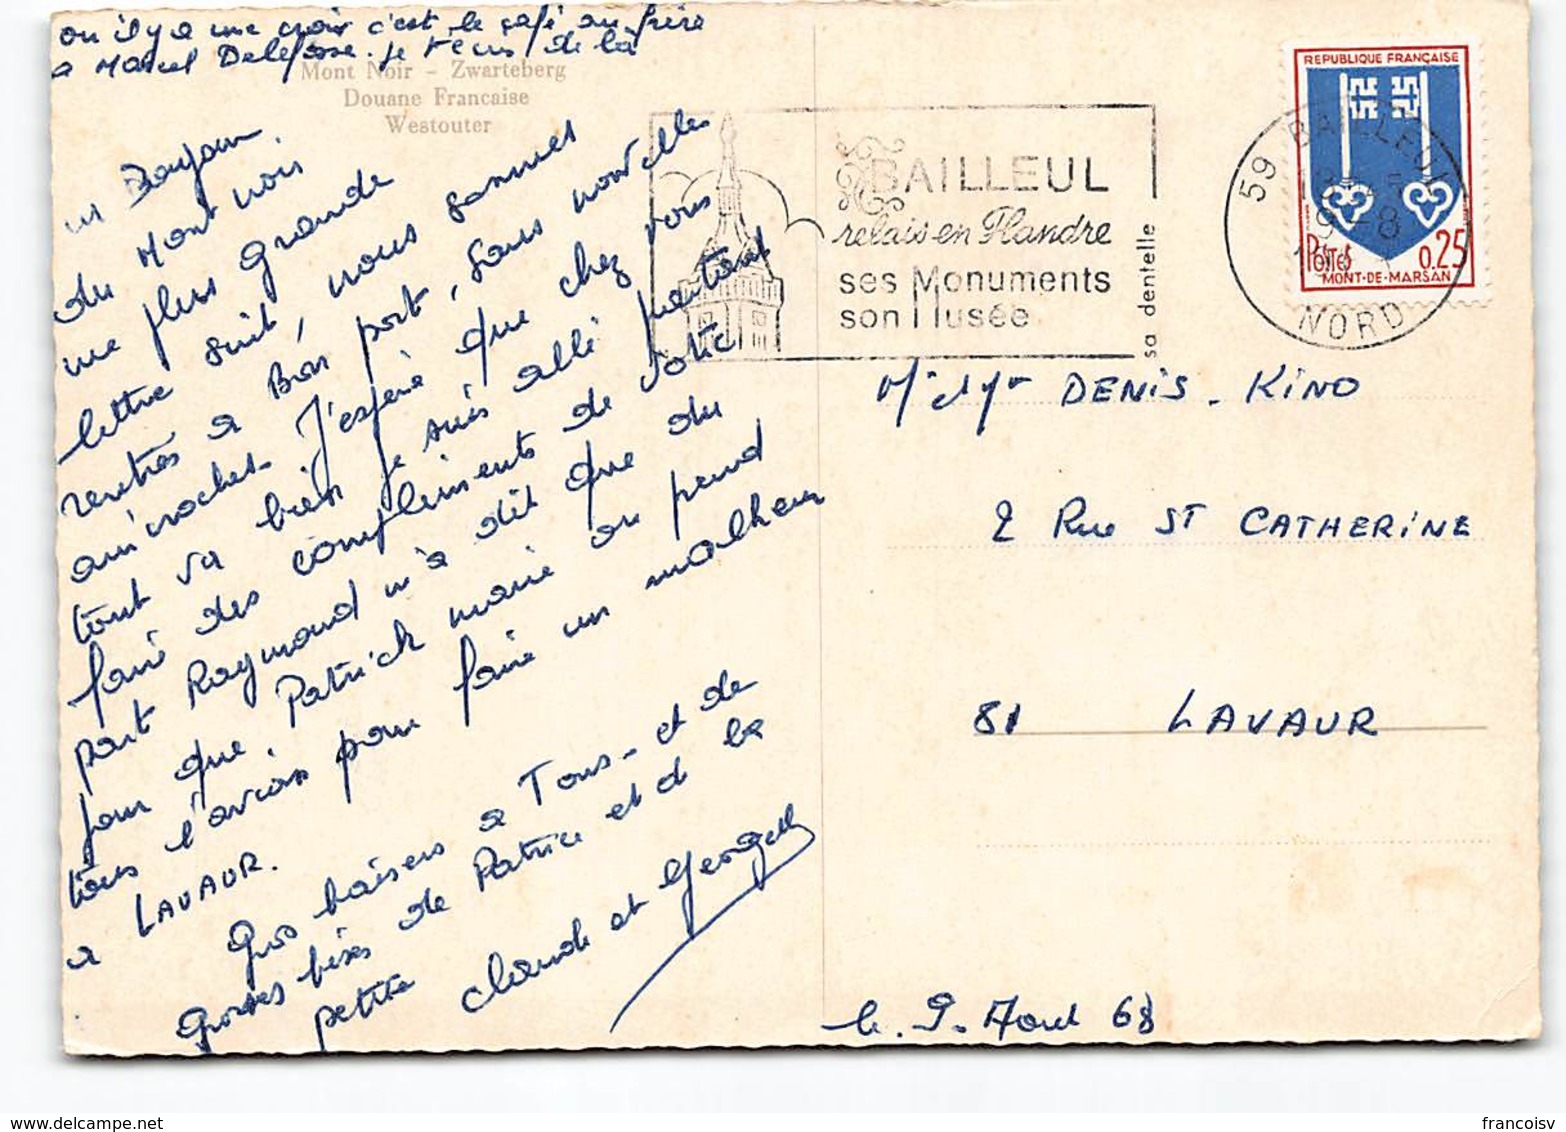 ou il y a une croix c'est le café au frère
a Marcel Delefosse. Je t'écris de là
Mont Noir - Zwarteberg
Douane Francaise
Westouter
un Bonjour
du Mont noir
une plus grande
lettre suit, nous sommes
rentrés a Bon port, sans nouvelles
anicroches. J'espère que chez vous
tout va bien je suis allé partout
faire des compliments de votre
part Raymond m'a dit que du
jour que. Patrick marié on prend
tous l'avion pour faire un malheur
a LAVAUR.
Gros baisers a Tous. et de
Grosses bises de Patrice et d la
petite Claude et Georgette
BAILLEUL
relais en Flandre
ses Monuments
son Musée
sa dentelle
59 BAILLEUL
9 - 8
NORD
REPUBLIQUE FRANÇAISE
Postes 0,25
MONT-DE-MARSAN
Mr et Me DENIS. KINO
2 Rue ST CATHERINE
81 LAVAUR
le. 9. Aout 68
francoisv